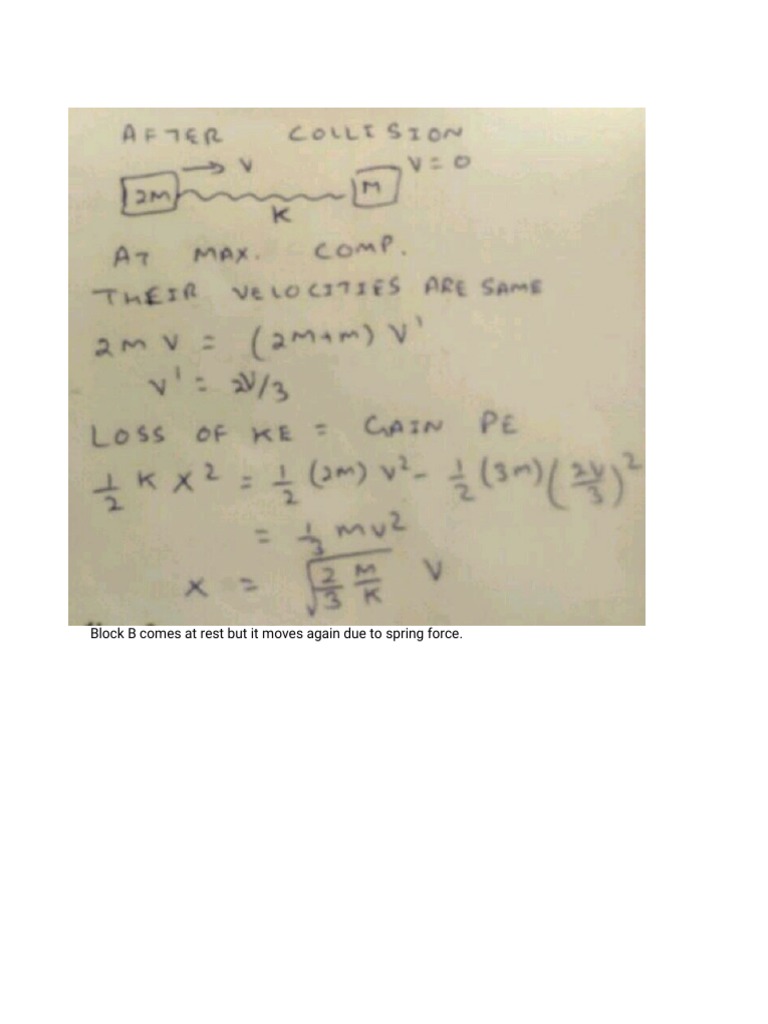 AFTER COLLISION
→ V V = 0
2M M
K
AT MAX. COMP.
THEIR VELOCITIES ARE SAME
2m v = (2m+m) v'
v' = 2V/3
LOSS OF KE = GAIN PE
1/2 K x² = 1/2 (2m) v² - 1/2 (3m) (2V/3)²
= 1/3 mv²
x = √(2/3 M/K) V
Block B comes at rest but it moves again due to spring force.